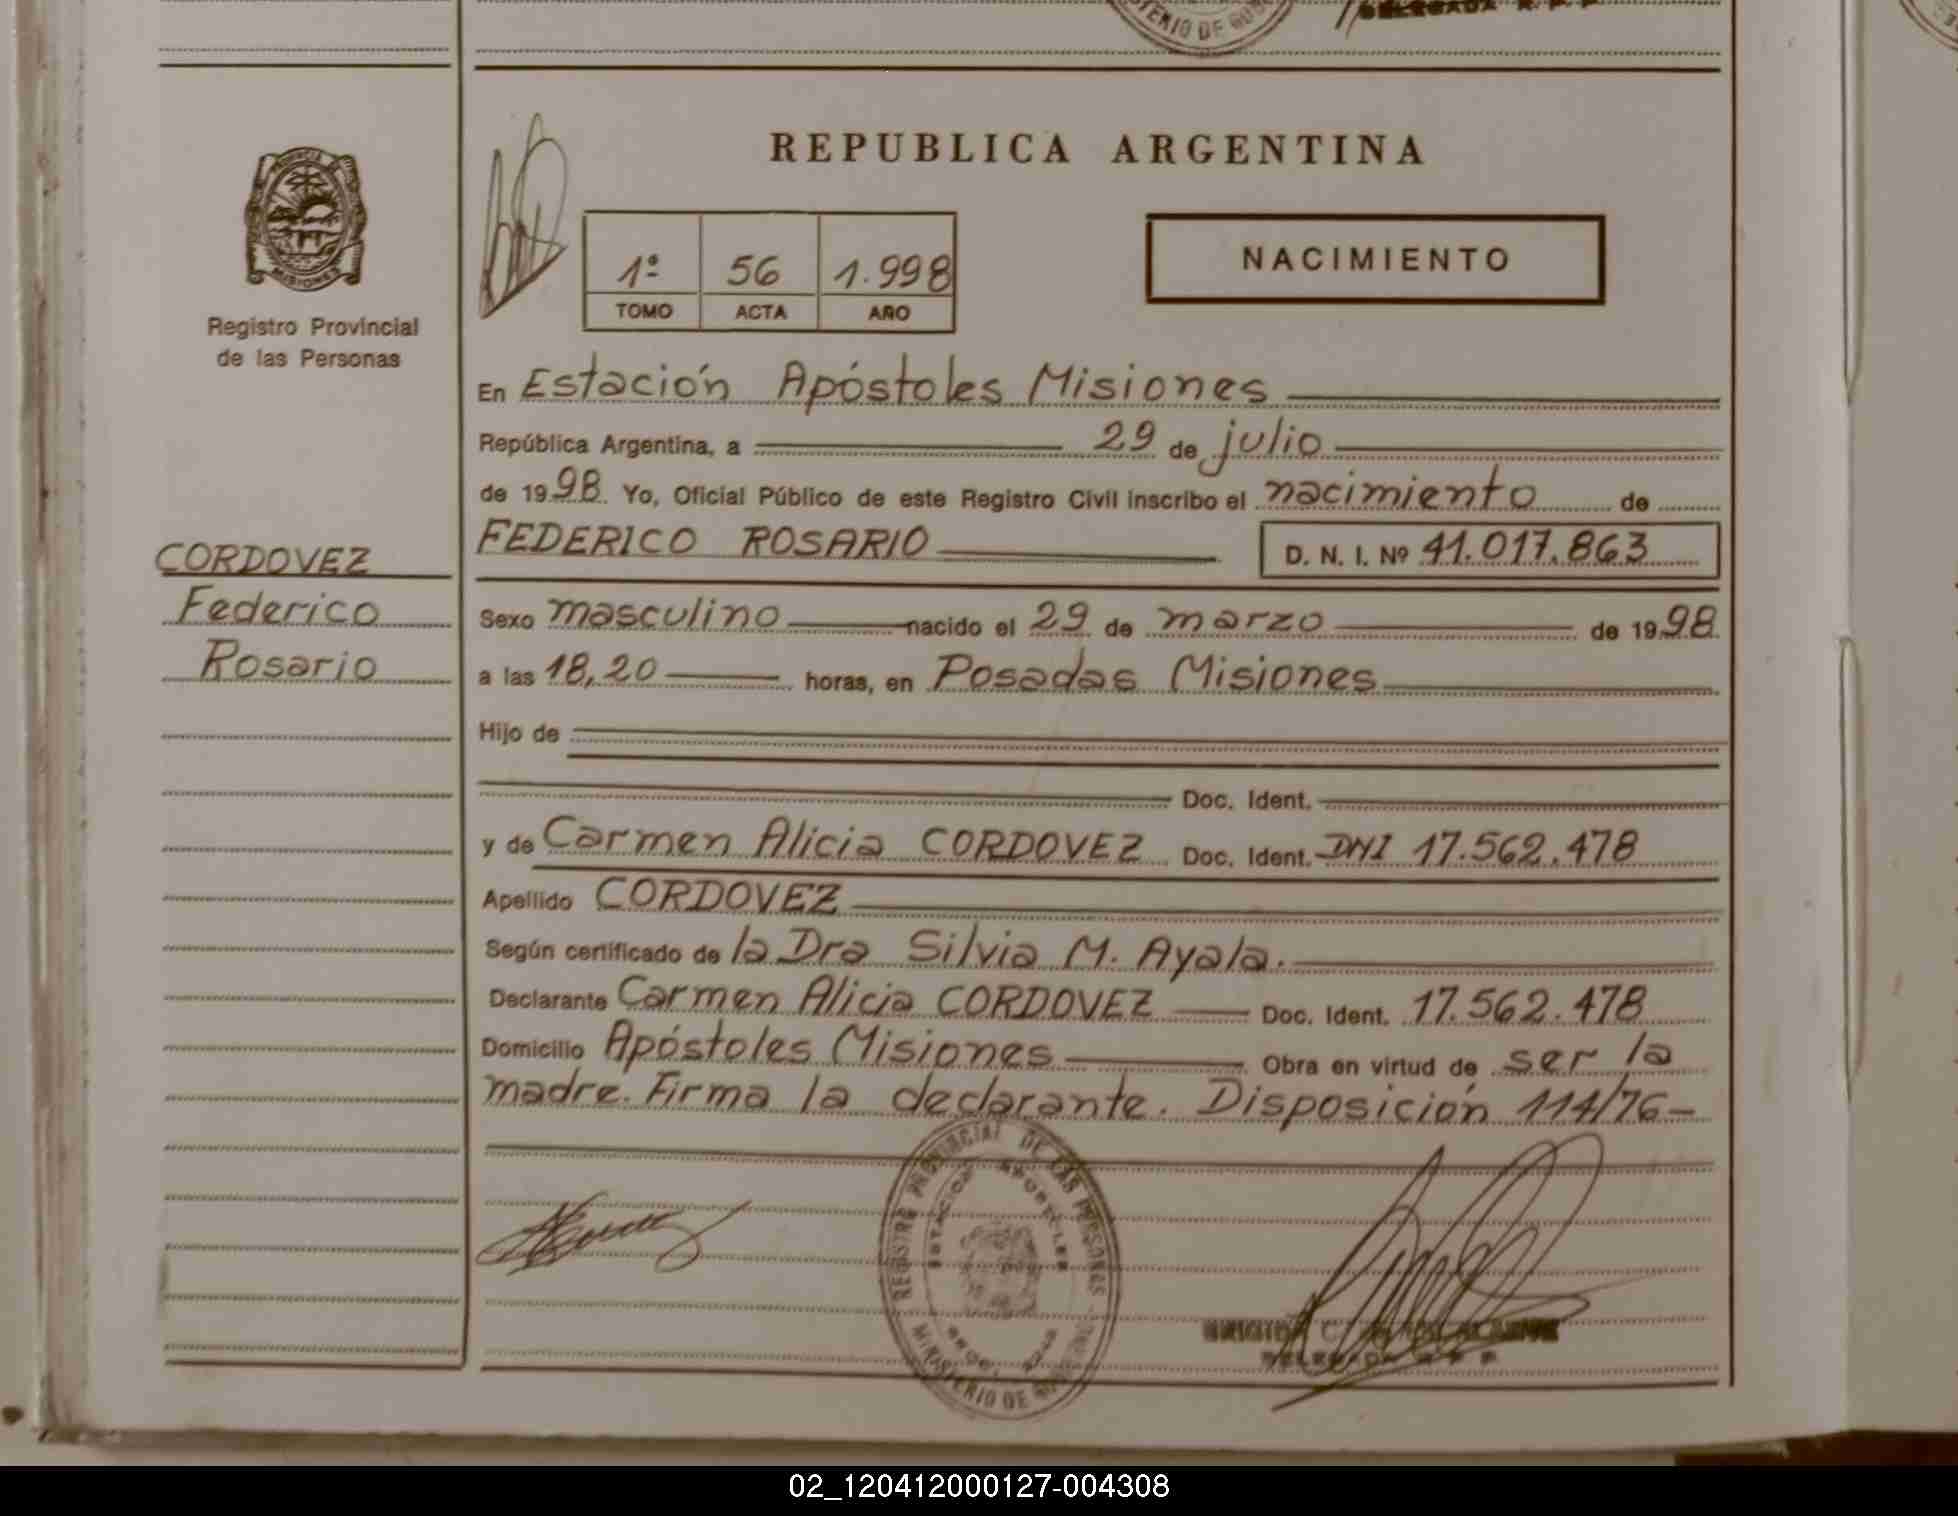 DELEGADA R. P. P.
REPUBLICA ARGENTINA
1º 56 1.998
TOMO ACTA AÑO
NACIMIENTO
MISIONES
Registro Provincial
de las Personas
En Estación Apóstoles Misiones
República Argentina, a 29 de julio
de 1998 Yo, Oficial Público de este Registro Civil inscribo el nacimiento de
FEDERICO ROSARIO D. N. I. Nº 41.017.863
CORDOVEZ
Federico
Rosario
Sexo masculino nacido el 29 de marzo de 1998
a las 18,20 horas, en Posadas Misiones
Hijo de
Doc. Ident.
y de Carmen Alicia CORDOVEZ Doc. Ident. DNI 17.562.478
Apellido CORDOVEZ
Según certificado de la Dra Silvia M. Ayala.
Declarante Carmen Alicia CORDOVEZ Doc. Ident. 17.562.478
Domicilio Apóstoles Misiones Obra en virtud de ser la
madre. Firma la declarante. Disposición 114/76-
REGISTRO PROVINCIAL DE LAS PERSONAS
ESTACION APOSTOLES
MINISTERIO DE
DELEGADA
02_120412000127-004308